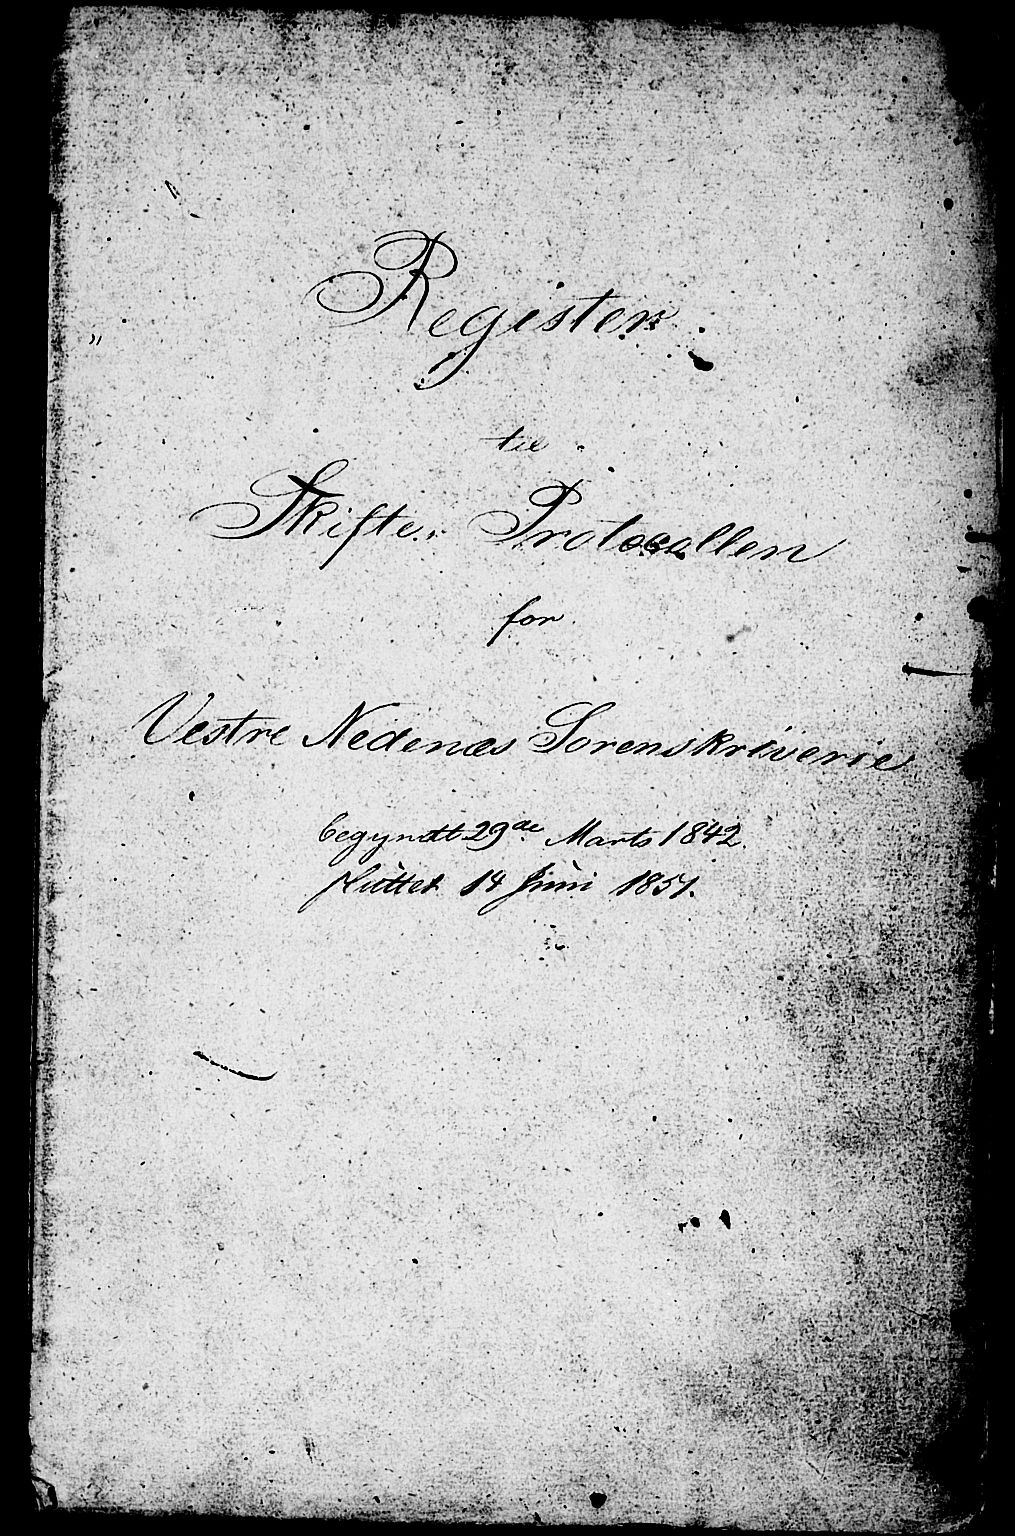 Register
til
Skifte-Protocollen
for
Vestre Nedenæs Sorenskriverie
begyndt 29de Marts 1842.
sluttet 14 Juni 1851.